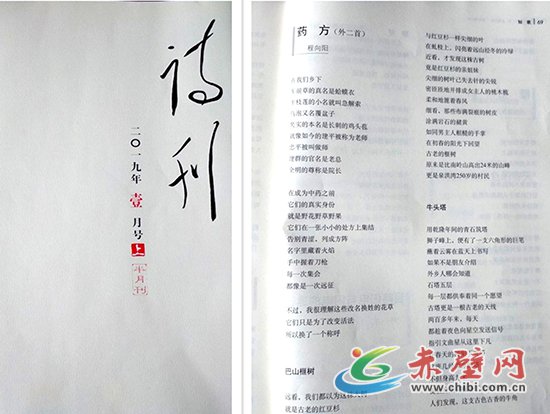 诗刊
二〇一九年 壹 月号 上
半月刊
诗歌 | 69
药 方(外二首)
程向阳
在我们乡下
车前草的真名是蛤蟆衣
枝莲的小名就叫急解索
泡又名覆盆子
芡实的本名是长刺的鸡头苞
就像如今的建平被称为老师
志平被叫做师
群的官名是老总
全明的尊称是院长
在成为中药之前
它们的真实身份
就是野花野草野果
它们在一张小小的处方上集结
告别青涩,列成方阵
名字里藏着火焰
手中握着刀枪
每一次集会
都像是一次远征
不过,我很理解这些改名换姓的花草
它们只是为了改变活法
所以换了一个称呼
巴山榧树
远看,我们都以为这棵大树
就是古老的红豆杉
与红豆杉一样尖细的叶
在虬枝上,闪亮着远山经冬的冷绿
近看,才发现这株古树
竟是红豆杉的亲姐妹
尖细的树叶已失去针的尖锐
密匝匝地并排成女主人的桃木梳
柔和地篦着春风
细看,那些布满裂痕的树皮
涂满岩石的褶黄
如同男主人粗糙的手掌
在初春的阳光下回望
古老的榧树
原来是比南岭山高出24米的山峰
更是泉洪湾250岁的村民
牛头塔
用乾隆年间的青石筑塔
狮子峰上,便有了一支六角形的巨笔
蘸着云雾在蓝天上书写
如果不是朋友介绍
外乡人哪会知道
石塔五层
每一层都供奉着同一个愿望
古塔更是一根古老的天线
两百多年来,每天
都趁着夜色向星空发送信号
指引文曲星从这里下凡
人们发现,这支古色古香的牛角
赤壁网
www.chibi.com.cn